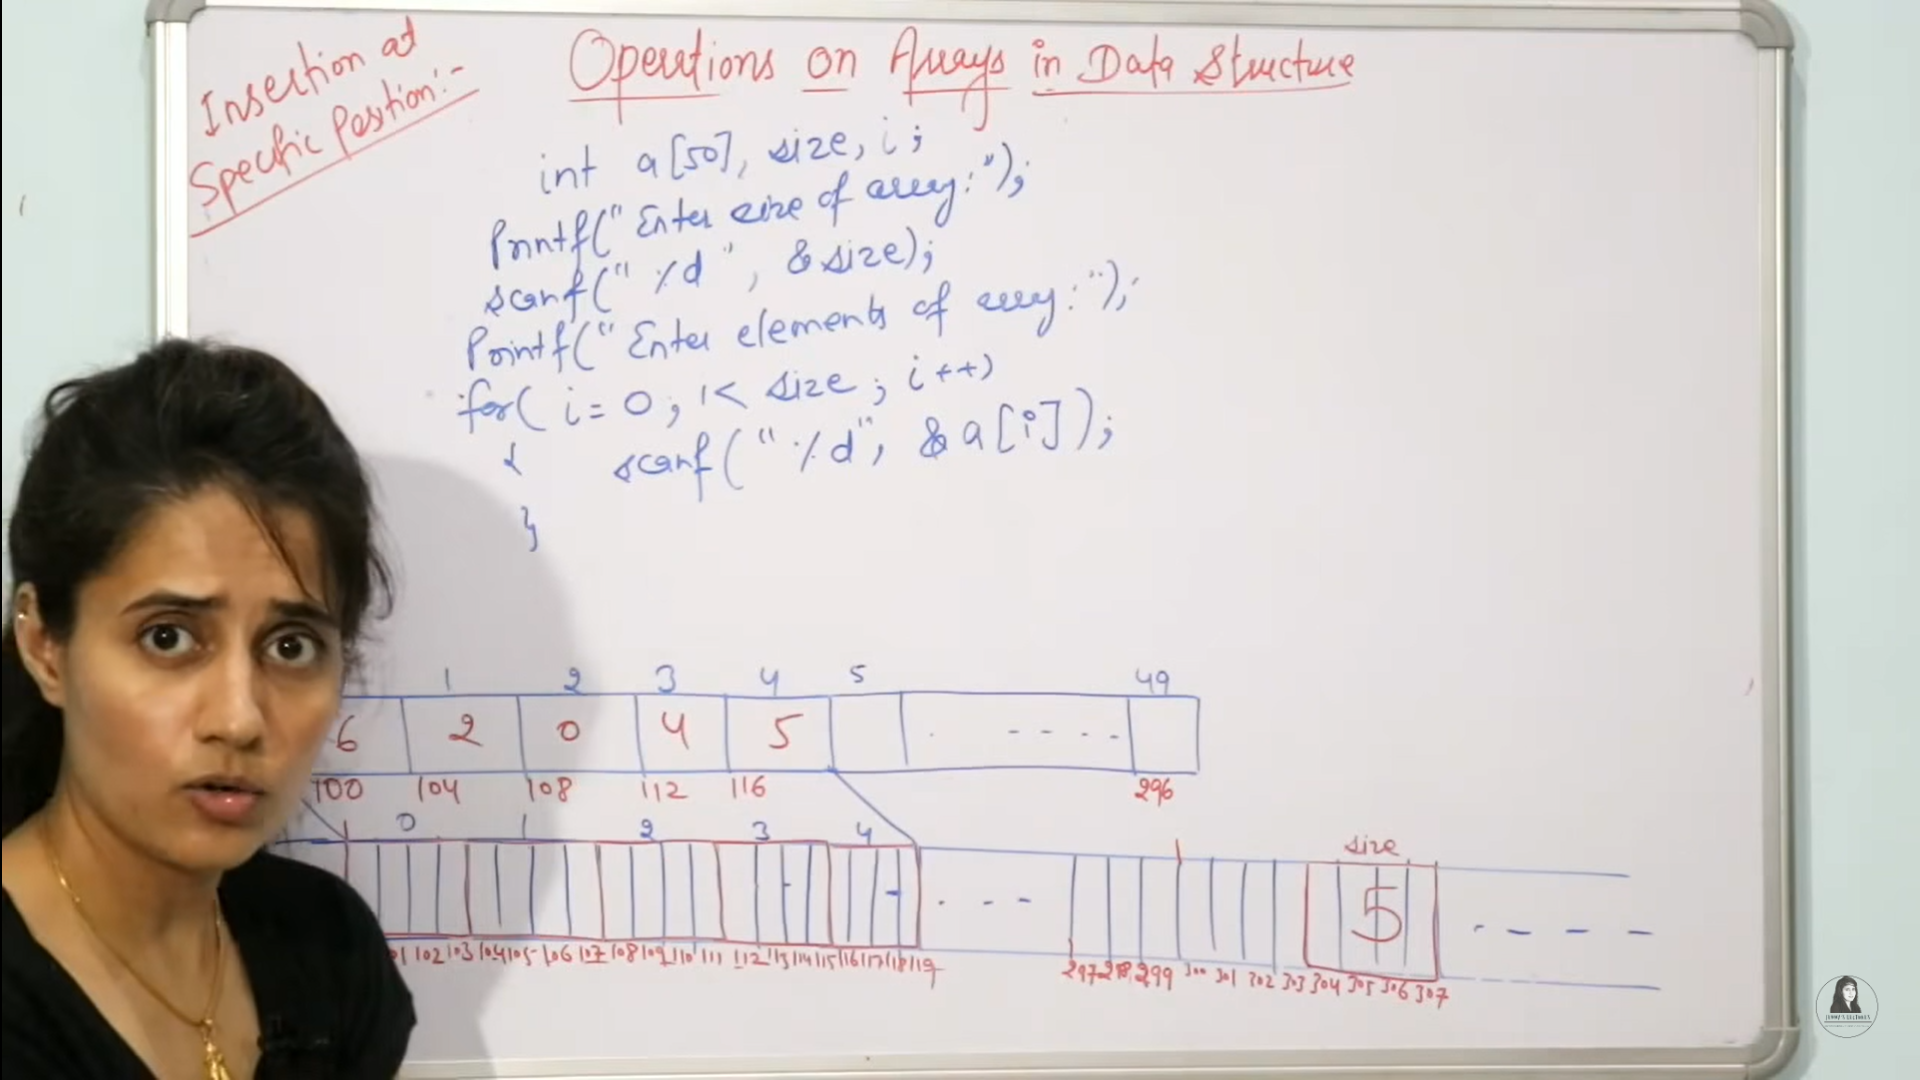 Insertion at
Specific Position:-
Operations on Arrays in Data Structure
int a[50], size, i;
Printf("Enter size of array:");
scanf("%d", &size);
Printf("Enter elements of array:");
for( i=0; i< size; i++)
{ scanf("%d", &a[i]);
}
1 2 3 4 5 49
6 2 0 4 5 . - - - -
100 104 108 112 116 296
0 1 2 3 4 size
- - - 5 - - - -
01 102 103 104 105 106 107 108 109 110 111 112 113 114 115 116 117 118 119 297 298 299 300 301 302 303 304 305 306 307
JENNY'S LECTURES